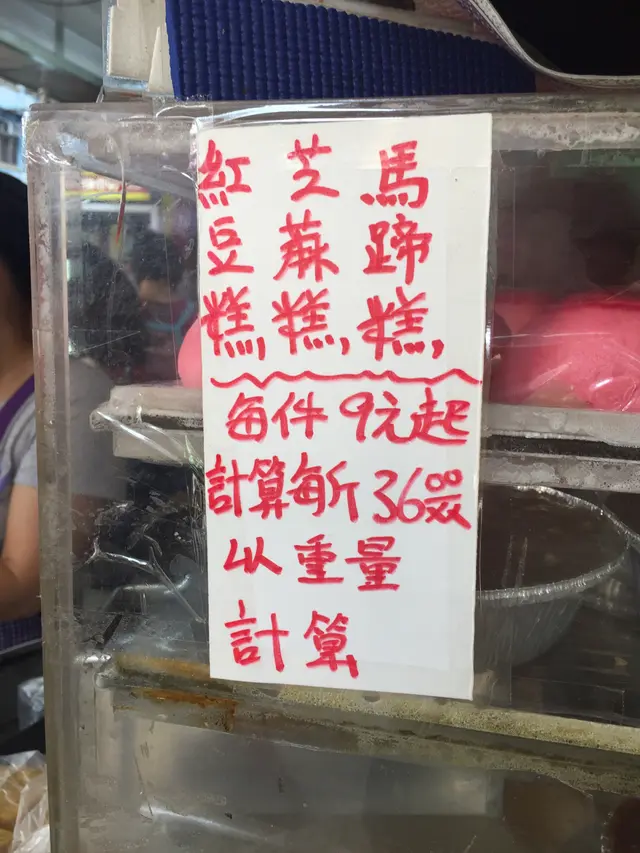 馬蹄糕,
芝蔴糕,
紅豆糕,
每件9元起
計算每斤36⁰⁰
以重量
計算